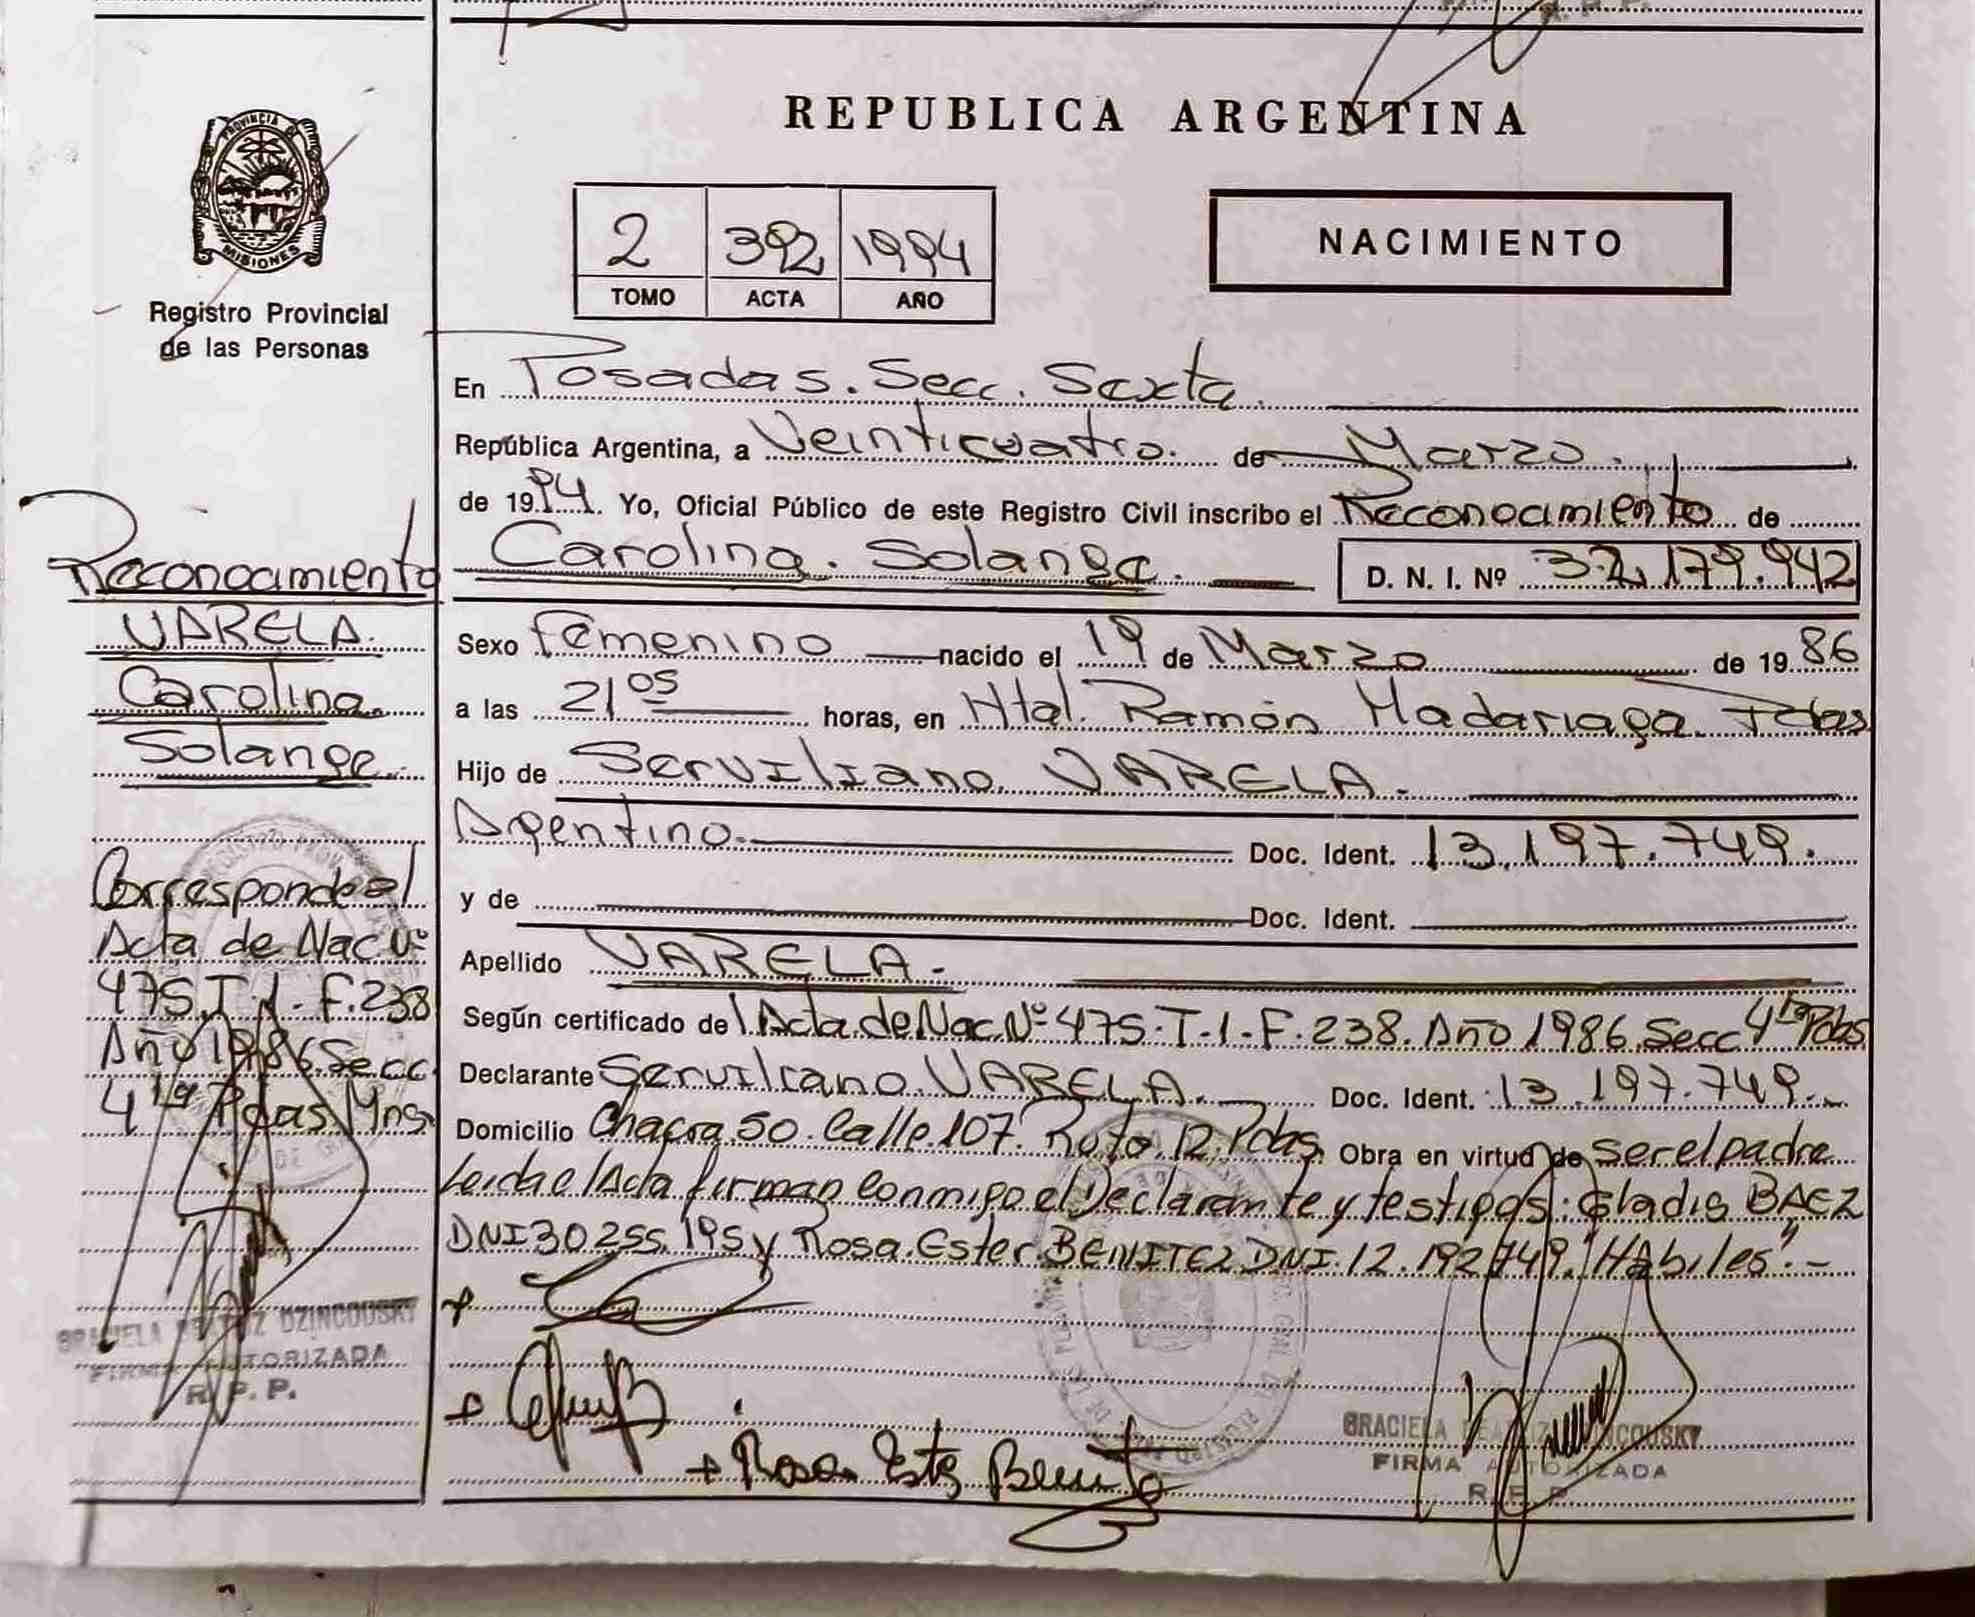 PROVINCIA DE
MISIONES
Registro Provincial
de las Personas
Reconocimiento
VARELA.
Carolina.
Solange.
Corresponde al
Acta de Nac Nº
475.T.1.F.238
Año 1986.Secc
4ta Pdas Mns.
GRACIELA BEATRIZ DZINCOUSKY
FIRMA AUTORIZADA
R. P. P.
REPUBLICA ARGENTINA
2 392 1994
TOMO ACTA AÑO
NACIMIENTO
En Posadas. Secc. Sexta.
República Argentina, a Veinticuatro. de Marzo.
de 1994. Yo, Oficial Público de este Registro Civil inscribo el Reconocimiento de
Carolina. Solange. D. N. I. Nº 32.179.942
Sexo femenino nacido el 19 de Marzo de 1986
a las 21 05 horas, en Htal. Ramón Madariaga. Pdas
Hijo de Serviliano. VARELA.
Agentino. Doc. Ident. 13.197.749.
y de Doc. Ident.
Apellido VARELA.
Según certificado de l Acta de Nac. Nº 475.T.1.F.238.Año 1986.Secc 4ta Pdas
Declarante Serviliano. VARELA. Doc. Ident. 13.197.749.
Domicilio Chacra 50. Calle 107. Ruta 12. Pdas. Obra en virtud de ser el padre
Leida el Acta firman conmigo el Declarante y testigos: Gladis BAEZ
DNI 30255.195 y Rosa.Ester.BENITEZ DNI.12.192749."Hábiles".-
Rosa Ester Benitez
GRACIELA BEATRIZ DZINCOUSKY
FIRMA AUTORIZADA
R. P. P.